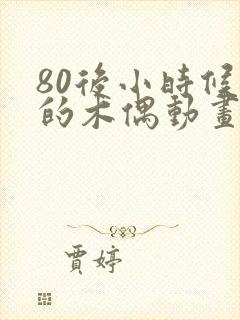 80後小時候
的木偶動畫
賈婷